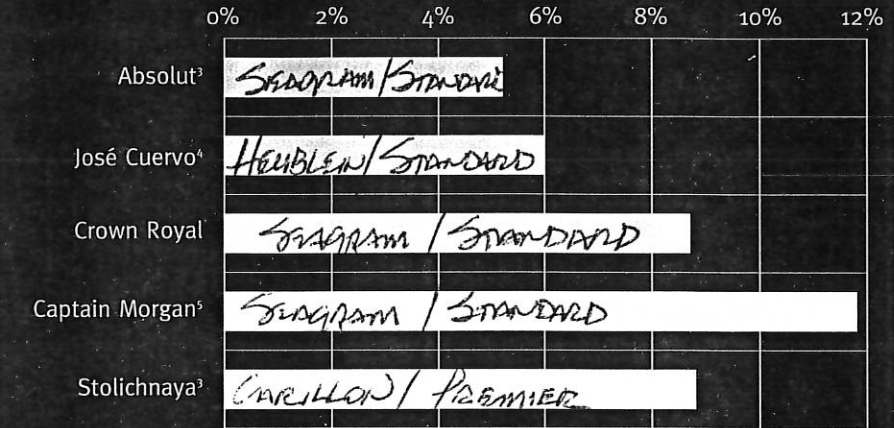 0% 2% 4% 6% 8% 10% 12%
Absolut³ SEAGRAM/STANDARD
José Cuervo⁴ HEUBLEIN/STANDARD
Crown Royal SEAGRAM / STANDARD
Captain Morgan⁵ SEAGRAM / STANDARD
Stolichnaya³ CARILLON / PREMIER